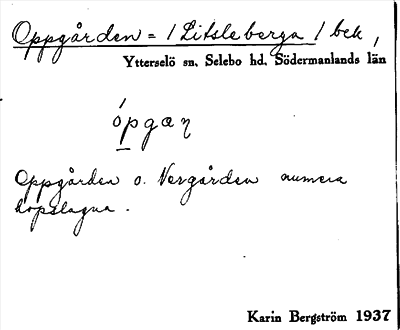 Oppgården = / Litsleberga / bek,
Ytterselö sn, Selebo hd, Södermanlands län
ópgaɳ
Oppgården o. Nergården numera
hopslagna.
Karin Bergström 1937